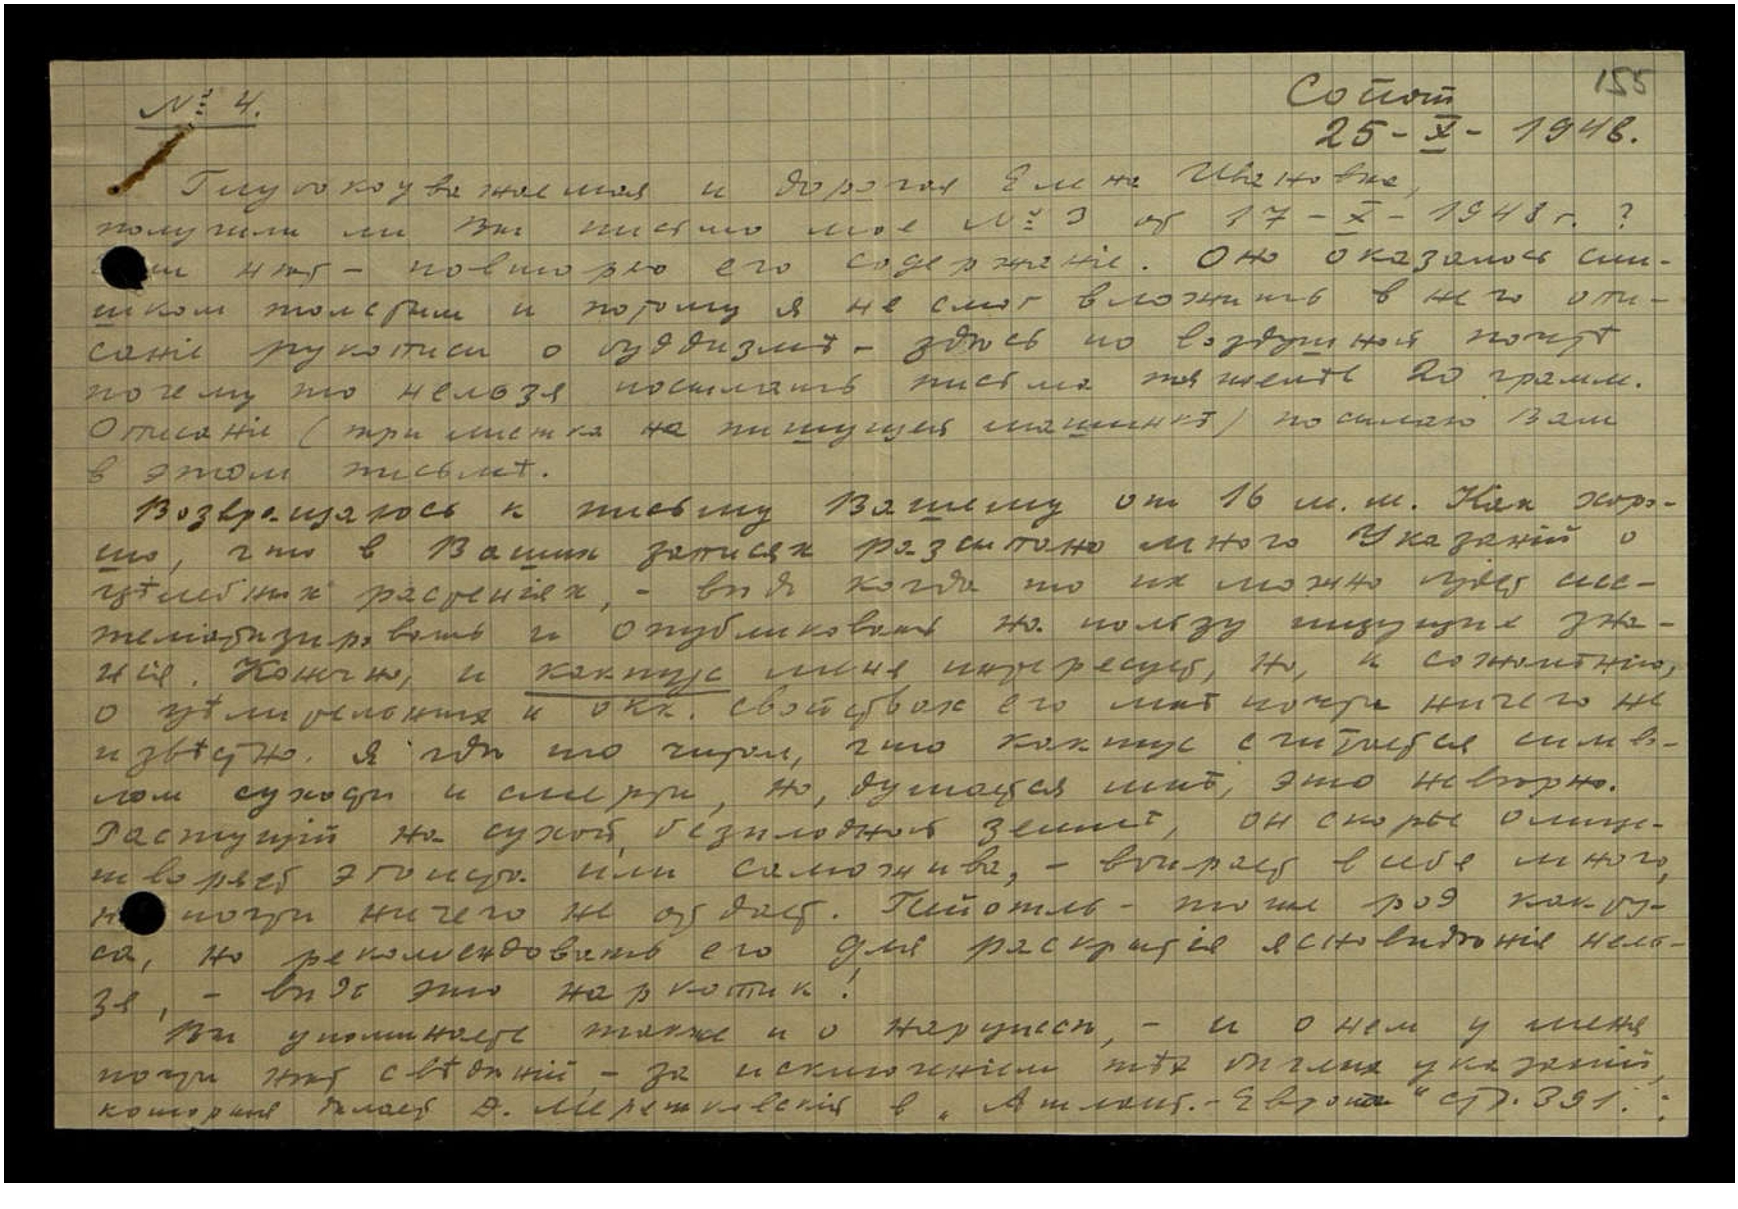 155
№ 4.
Сопот
25-X-1948.
Глубокоуважаемая и дорогая Елена Ивановна,
получили ли Вы письмо мое № 3 от 17-X-1948 г.?
нѣт - повторю его содержанiе. Оно оказалось сли-
шком толстым и потому я не смог вложить в него опи-
санiе рукописи о буддизмѣ - здѣсь по воздушной почтѣ
почему то нельзя посылать письма тяжелѣе 20 грамм.
Описанiе (три листка на пишущей машинкѣ) посылаю Вам
в этом письмѣ.
Возвращаюсь к письму Вашему от 16 м.м. Как хоро-
шо, что в Ваших записях разсыпано много Указанiй о
цѣлебных растенiях, - вѣдь когда то их можно будет сис-
тематизировать и опубликовать на пользу ищущих зна-
нiя. Конечно, и кактус меня интересует, но, к сожалѣнiю,
о цѣлительных и окк. свойствах его мнѣ почти ничего не
извѣстно. Я гдѣ то читал, что кактус считается симво-
лом сухости и смерти, но, думается мнѣ, это невѣрно.
Растущiй на сухой, безплодной землѣ, он скорѣе олице-
творяет эгоиста или саможива, - вбирает в себя много,
но почти ничего не отдает. Пейотль - тоже род какту-
са, но рекомендовать его для раскрытiя ясновидѣнiя нель-
зя, - вѣдь это наркотик!
Вы упоминаете также и о нарциссѣ, - и о нем у меня
почти нѣт свѣдѣнiй, - за исключенiем тѣх бѣглых указанiй,
которыя дѣлает Д. Мережковскiй в „Атлант.-Европа" стр. 391.: